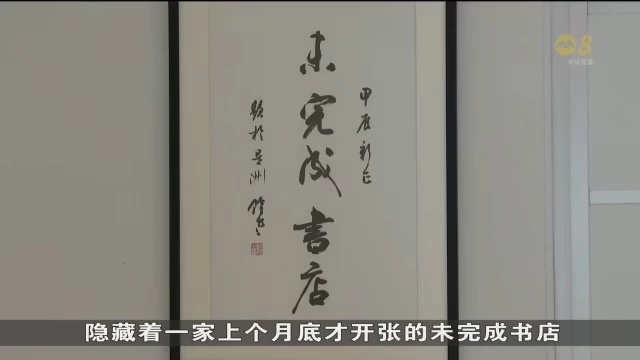 8
甲辰新正
未完成書店
题於星洲
隐藏着一家上个月底才开张的未完成书店